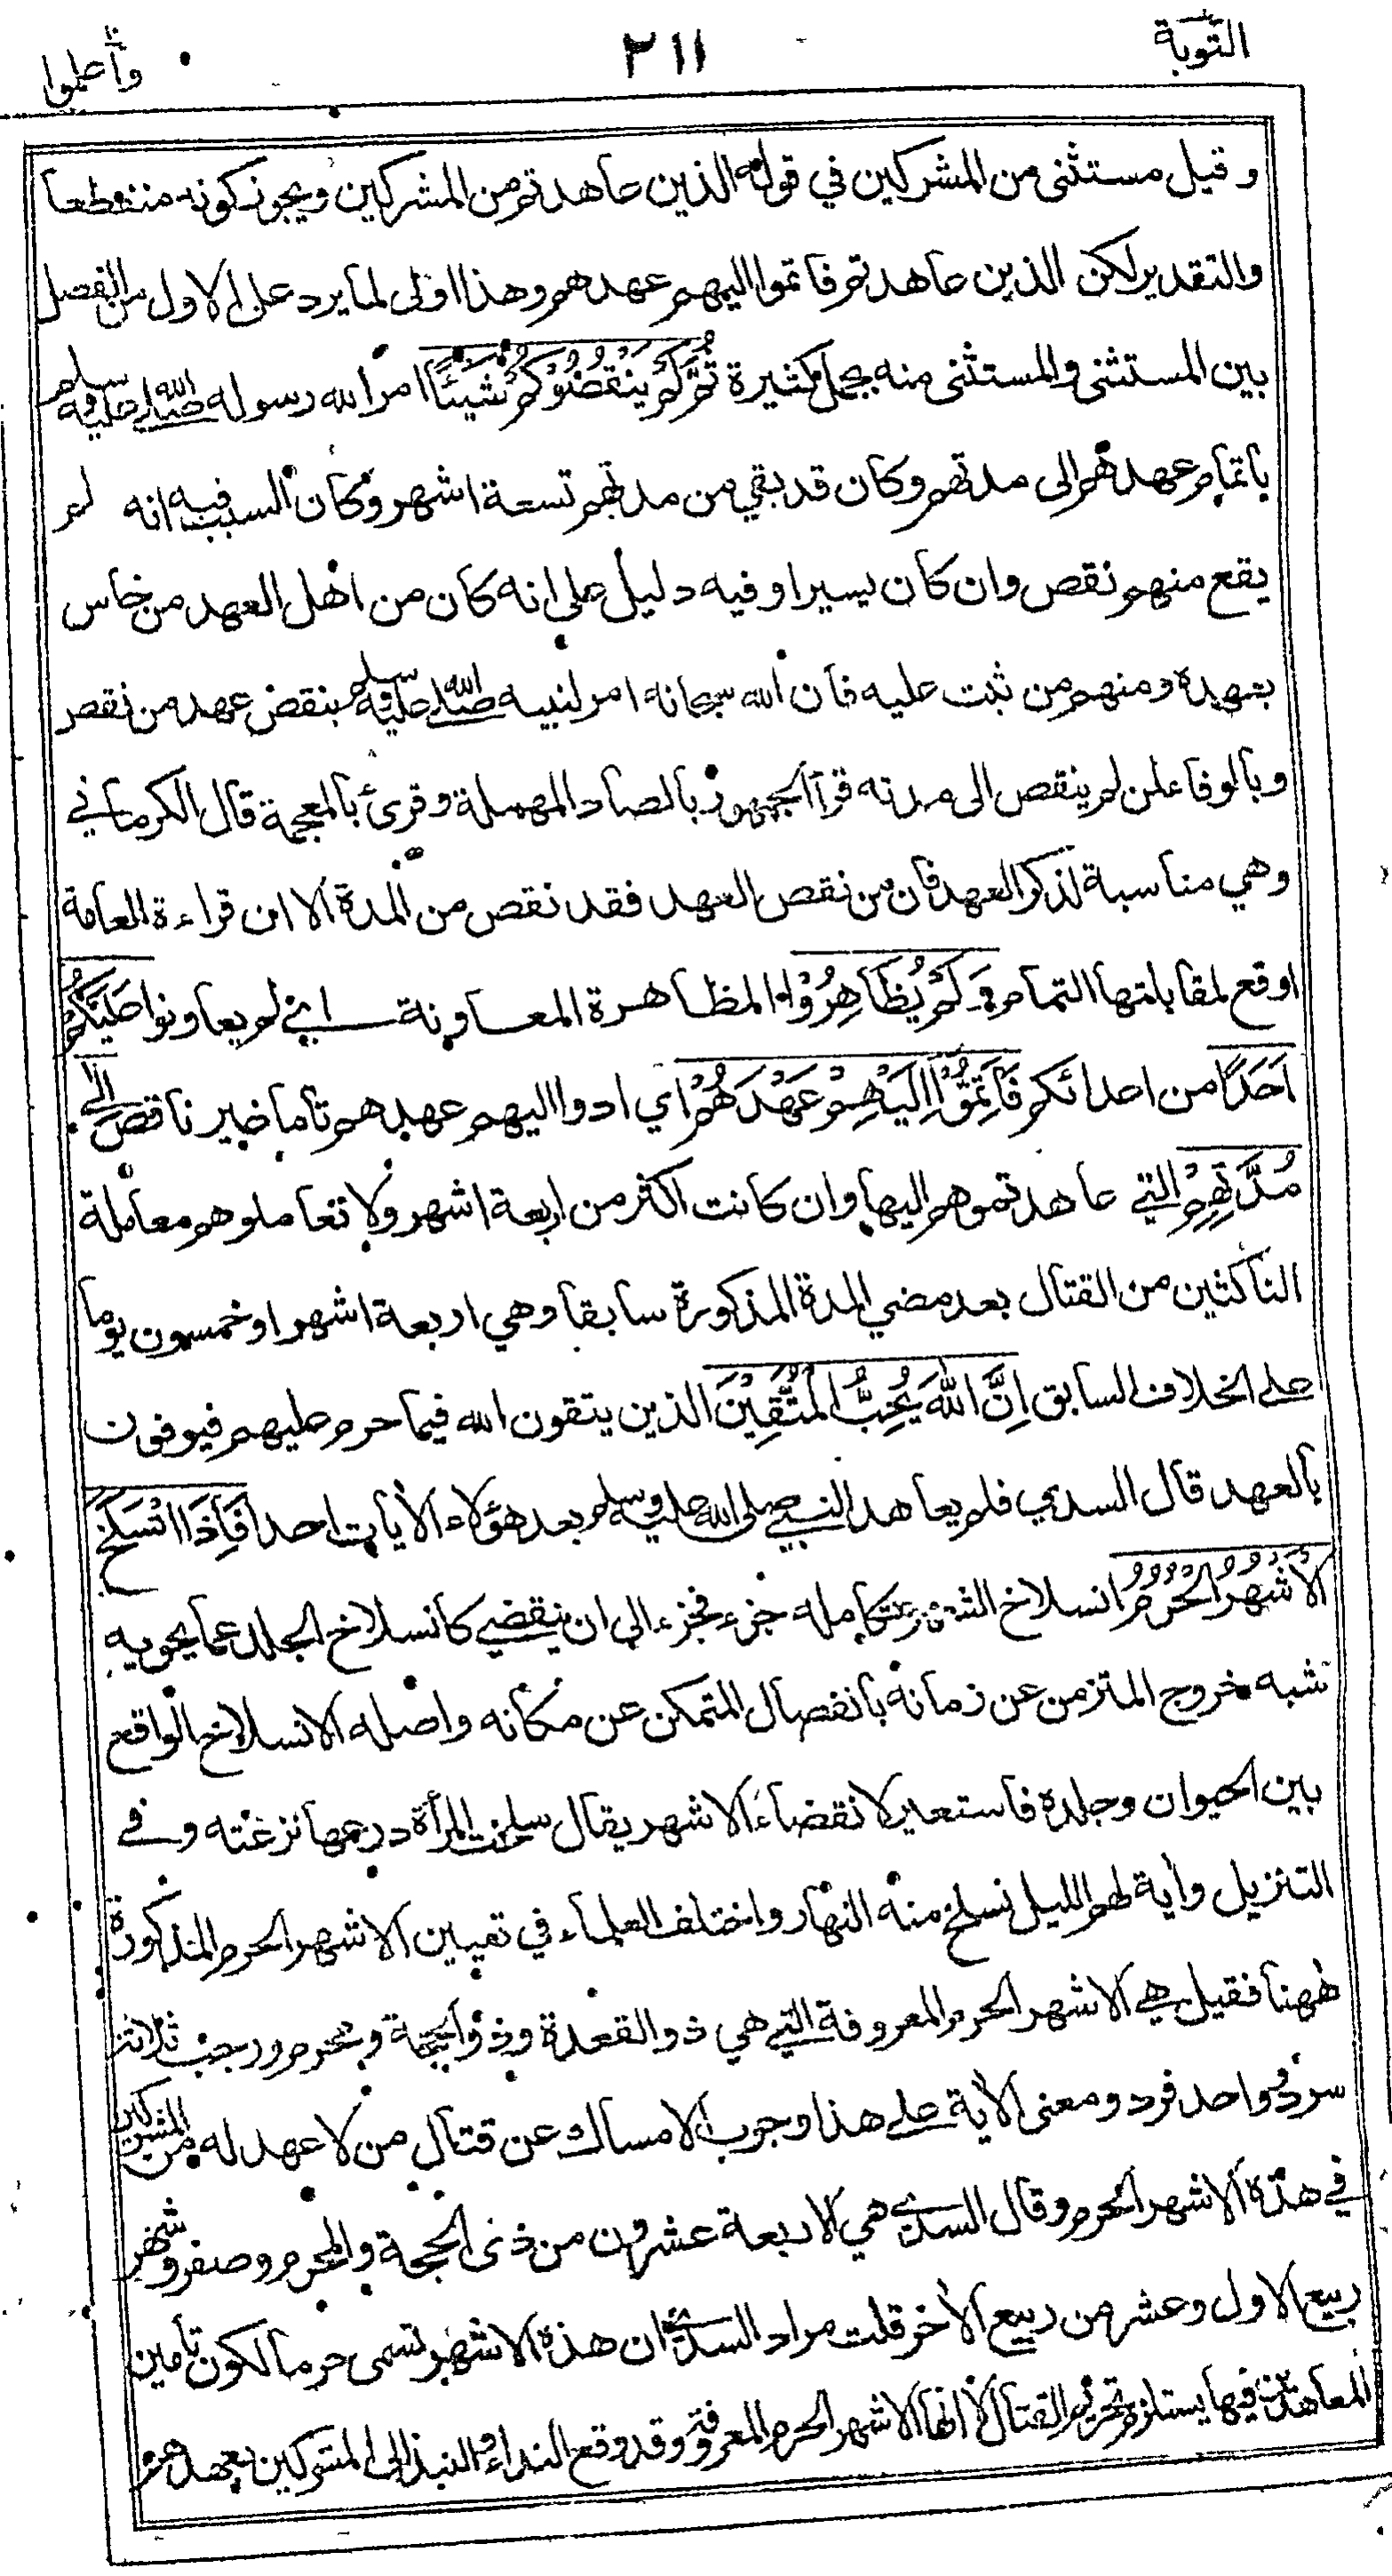 التوبة ٢١١ واعلموا
وقيل مستثنى من المشركين في قوله الذين عاهدتم من المشركين ويجوز كونه منقطعا
والتقدير لكن الذين عاهدتم فاتموا اليهم عهدهم وهذا اولى لما يرد على الاول من الفصل
بين المستثنى والمستثنى منه بجمل كثيرة ثُمَّ لَمْ يَنْقُصُوْكُمْ شَيْئًا امر الله رسوله صلى الله عليه وسلم
باتمام عهدهم الى مدتهم وكان قد بقي من مدتهم تسعة اشهر وكان السبب فيه انه لم
يقع منهم نقص وان كان يسيرا وفيه دليل على انه كان من اهل العهد من خاس
بعهده ومنهم من ثبت عليه فان الله سبحانه امر لنبيه صلى الله عليه وسلم بنقض عهد من نقص
وبالوفا علمن لم ينقص الى مدته قرأ الجمهور بالصاد المهملة وقرئ بالمعجمة قال الكرماني
وهي مناسبة لذكر العهد فان من نقص العهد فقد نقص من المدة الا ان قراءة العامة
اوقع لمقابلتها التمام وَلَمْ يُظَاهِرُوْا المظاهرة المعاونة اي لم يعاونوا عَلَيْكُمْ
اَحَدًا من اعدائكم فَاَتِمُّوْٓا اِلَيْهِمْ عَهْدَهُمْ اي ادوا اليهم عهدهم تاما غير ناقص اِلٰى
مُدَّتِهِمْ التي عاهدتموهم اليها وان كانت اكثر من اربعة اشهر ولا تعاملوهم معاملة
الناكثين من القتال بعد مضي المدة المذكورة سابقا وهي اربعة اشهر او خمسون يوما
على الخلاف السابق اِنَّ اللّٰهَ يُحِبُّ الْمُتَّقِيْنَ الذين يتقون الله فيما حرم عليهم فيوفون
بالعهد قال السدي فلم يعاهد النبي صلى الله عليه وسلم بعد هؤلاء الآيات احدا فَاِذَا انْسَلَخَ
الْاَشْهُرُ الْحُرُمُ انسلاخ الشهر تكامله جزء فجزء الى ان ينقضي كانسلاخ الجلد عما يحويه
شبه خروج المتزمن عن زمانه بانفصال المتمكن عن مكانه واصله الانسلاخ الواقع
بين الحيوان وجلده فاستعير لانقضاء الاشهر يقال سلخت المرأة درعها نزعته وفي
التنزيل وآية لهم الليل نسلخ منه النهار واختلف العلماء في تعيين الاشهر الحرم المذكورة
ههنا فقيل هي الاشهر الحرم المعروفة التي هي ذو القعدة وذو الحجة ومحرم ورجب ثلاثة
سرد وواحد فرد ومعنى الآية على هذا وجوب الامساك عن قتال من لا عهد له من المشركين
في هذه الاشهر الحرم وقال السدي هي الاربعة عشرون من ذى الحجة والمحرم وصفر وشهر
ربيع الاول وعشر من ربيع الآخر قلت مراد السدي ان هذه الاشهر تسمى حرما لكون تامين
المعاهدين فيها يستلزم تحريم القتال لا انها الاشهر الحرم المعروفة وقد وقع النداء والنبذ الى المشركين بعهدهم